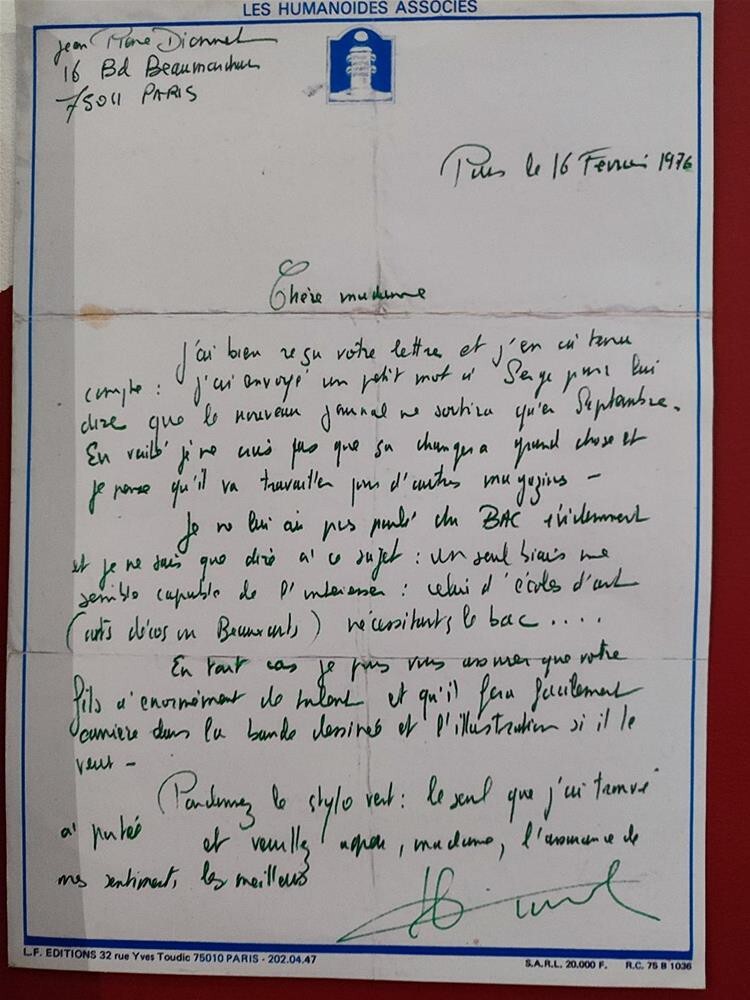 LES HUMANOIDES ASSOCIÉS
Jean Pierre Dionnet
16 Bd Beaumarchais
75011 PARIS
Paris le 16 Février 1976
Chère madame
J'ai bien reçu votre lettre et j'en ai tenu
compte : j'ai envoyé un petit mot à Serge pour lui
dire que le nouveau journal ne sortira qu'en Septembre.
En vérité je ne crois pas que ça changera grand chose et
je pense qu'il va travailler pour d'autres magazines -
Je ne lui ai pas parlé du BAC évidemment
et je ne sais que dire à ce sujet : un seul biais me
semble capable de l'intéresser : celui d'écoles d'art
(arts décos ou Beauxarts) nécessitants le bac ....
En tout cas je puis vous assurer que votre
fils a énormément de talent et qu'il fera facilement
carrière dans la bande dessinée et l'illustration si il le
veut -
Pardonnez le stylo vert : le seul que j'ai trouvé
à portée et veuillez agréer, madame, l'assurance de
mes sentiments les meilleurs
L.F. EDITIONS 32 rue Yves Toudic 75010 PARIS - 202.04.47
S.A.R.L. 20.000 F. R.C. 75 B 1036